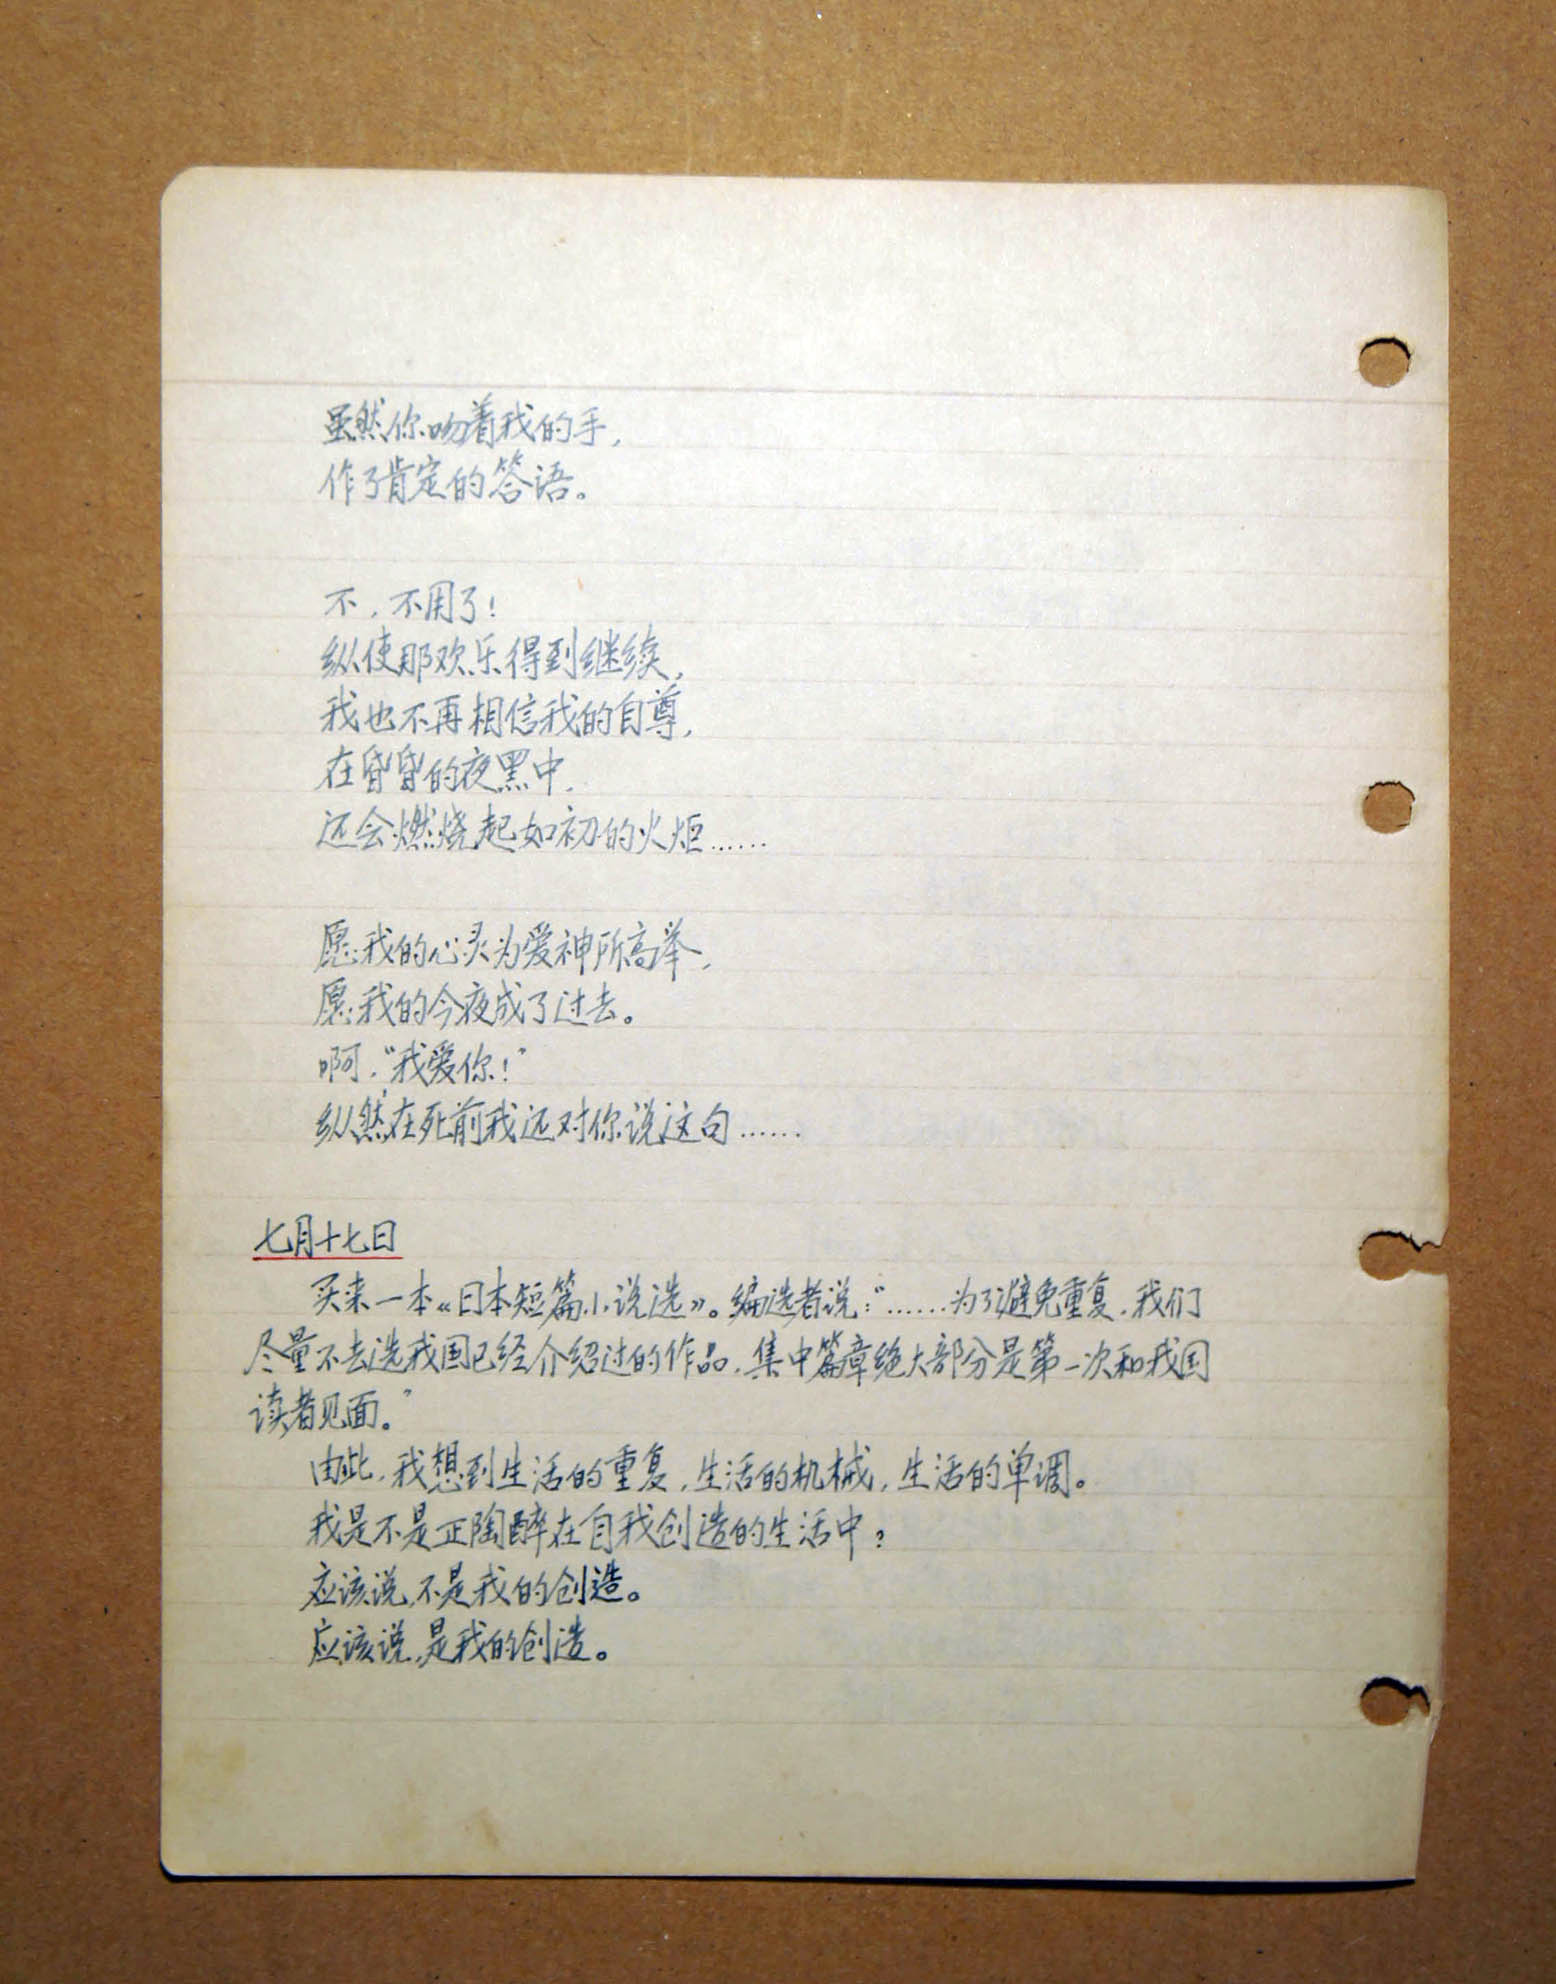 虽然你吻着我的手，
作了肯定的答语。
不，不用了！
纵使那欢乐得到继续，
我也不再相信我的自尊，
在昏昏的夜黑中，
还会燃烧起如初的火炬……
愿我的心灵为爱神所高举，
愿我的今夜成了过去。
啊，“我爱你！”
纵然在死前我还对你说这句……
七月十七日
买来一本《日本短篇小说选》。编选者说：“……为了避免重复，我们
尽量不去选我国已经介绍过的作品，集中篇章绝大部分是第一次和我国
读者见面。”
由此，我想到生活的重复，生活的机械，生活的单调。
我是不是正陶醉在自我创造的生活中？
应该说，不是我的创造。
应该说，是我的创造。